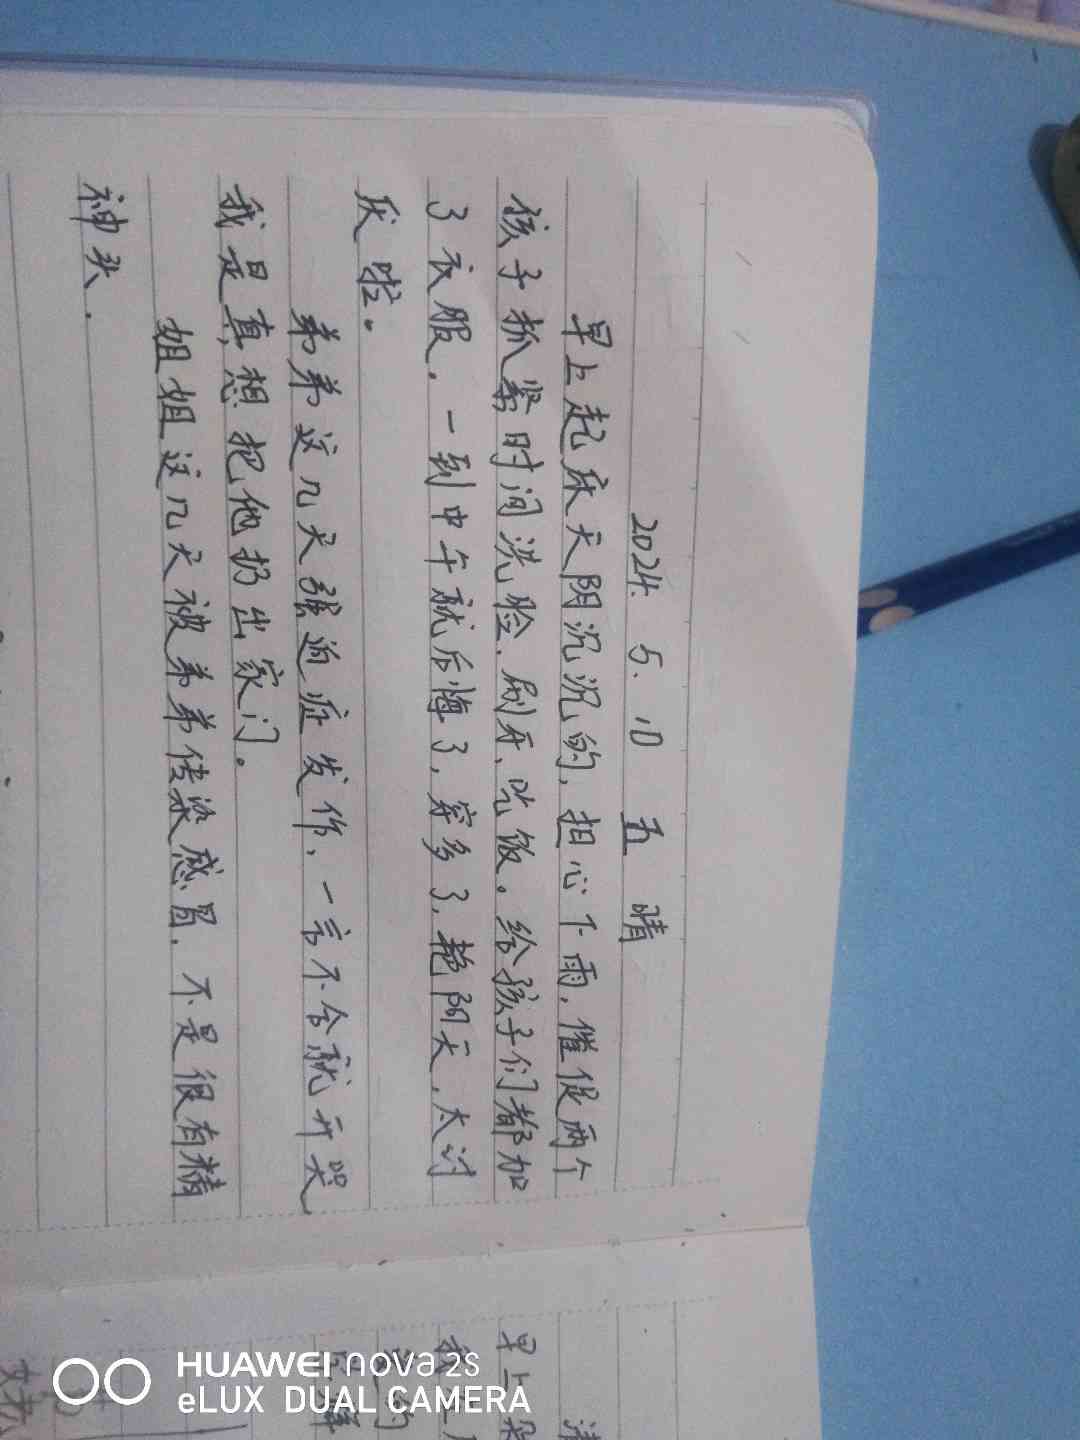 2024. 5. 10 五 晴
早上起床天阴沉沉的,担心下雨,催促两个
孩子抓紧时间洗脸、刷牙、吃饭。给孩子们都加
了衣服。一到中午就后悔了,穿多了,艳阳天,太讨
厌啦。
弟弟这几天强迫症发作,一言不合就开哭
我是真想把他扔出家门。
姐姐这几天被弟弟传染感冒,不是很有精
神头.
早上
我
HUAWEI nova 2s
eLUX DUAL CAMERA